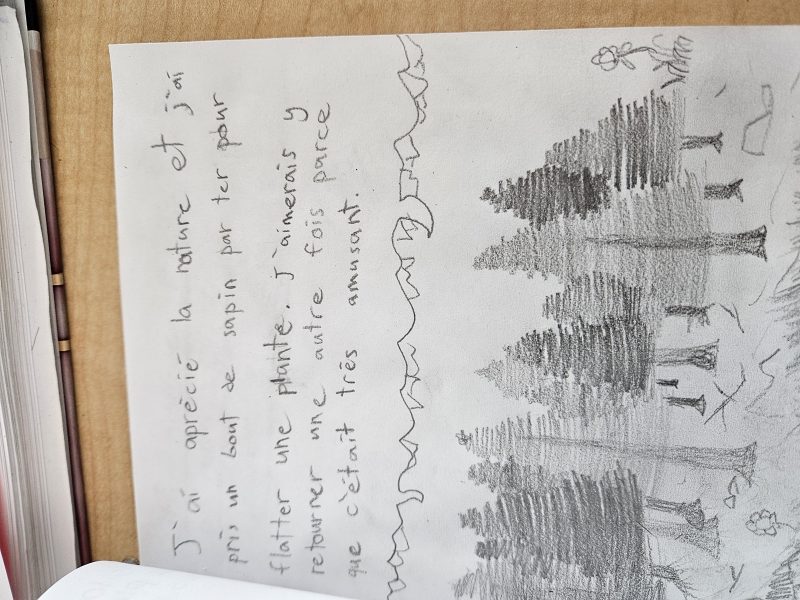 J'ai aprécié la nature et j'ai
pris un bout de sapin par ter pour
flatter une plante. J'aimerais y
retourner une autre fois parce
que c'était très amusant.